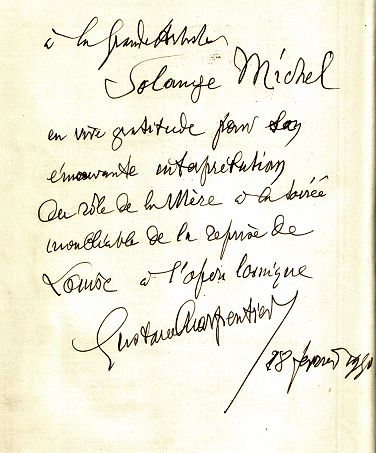 à la Grande Artiste
Solange Michel
en vive gratitude pour son
émouvante interprétation
du rôle de la Mère à la soirée
inoubliable de la reprise de
Louise à l'opéra comique
Gustave Charpentier
28 février 1950